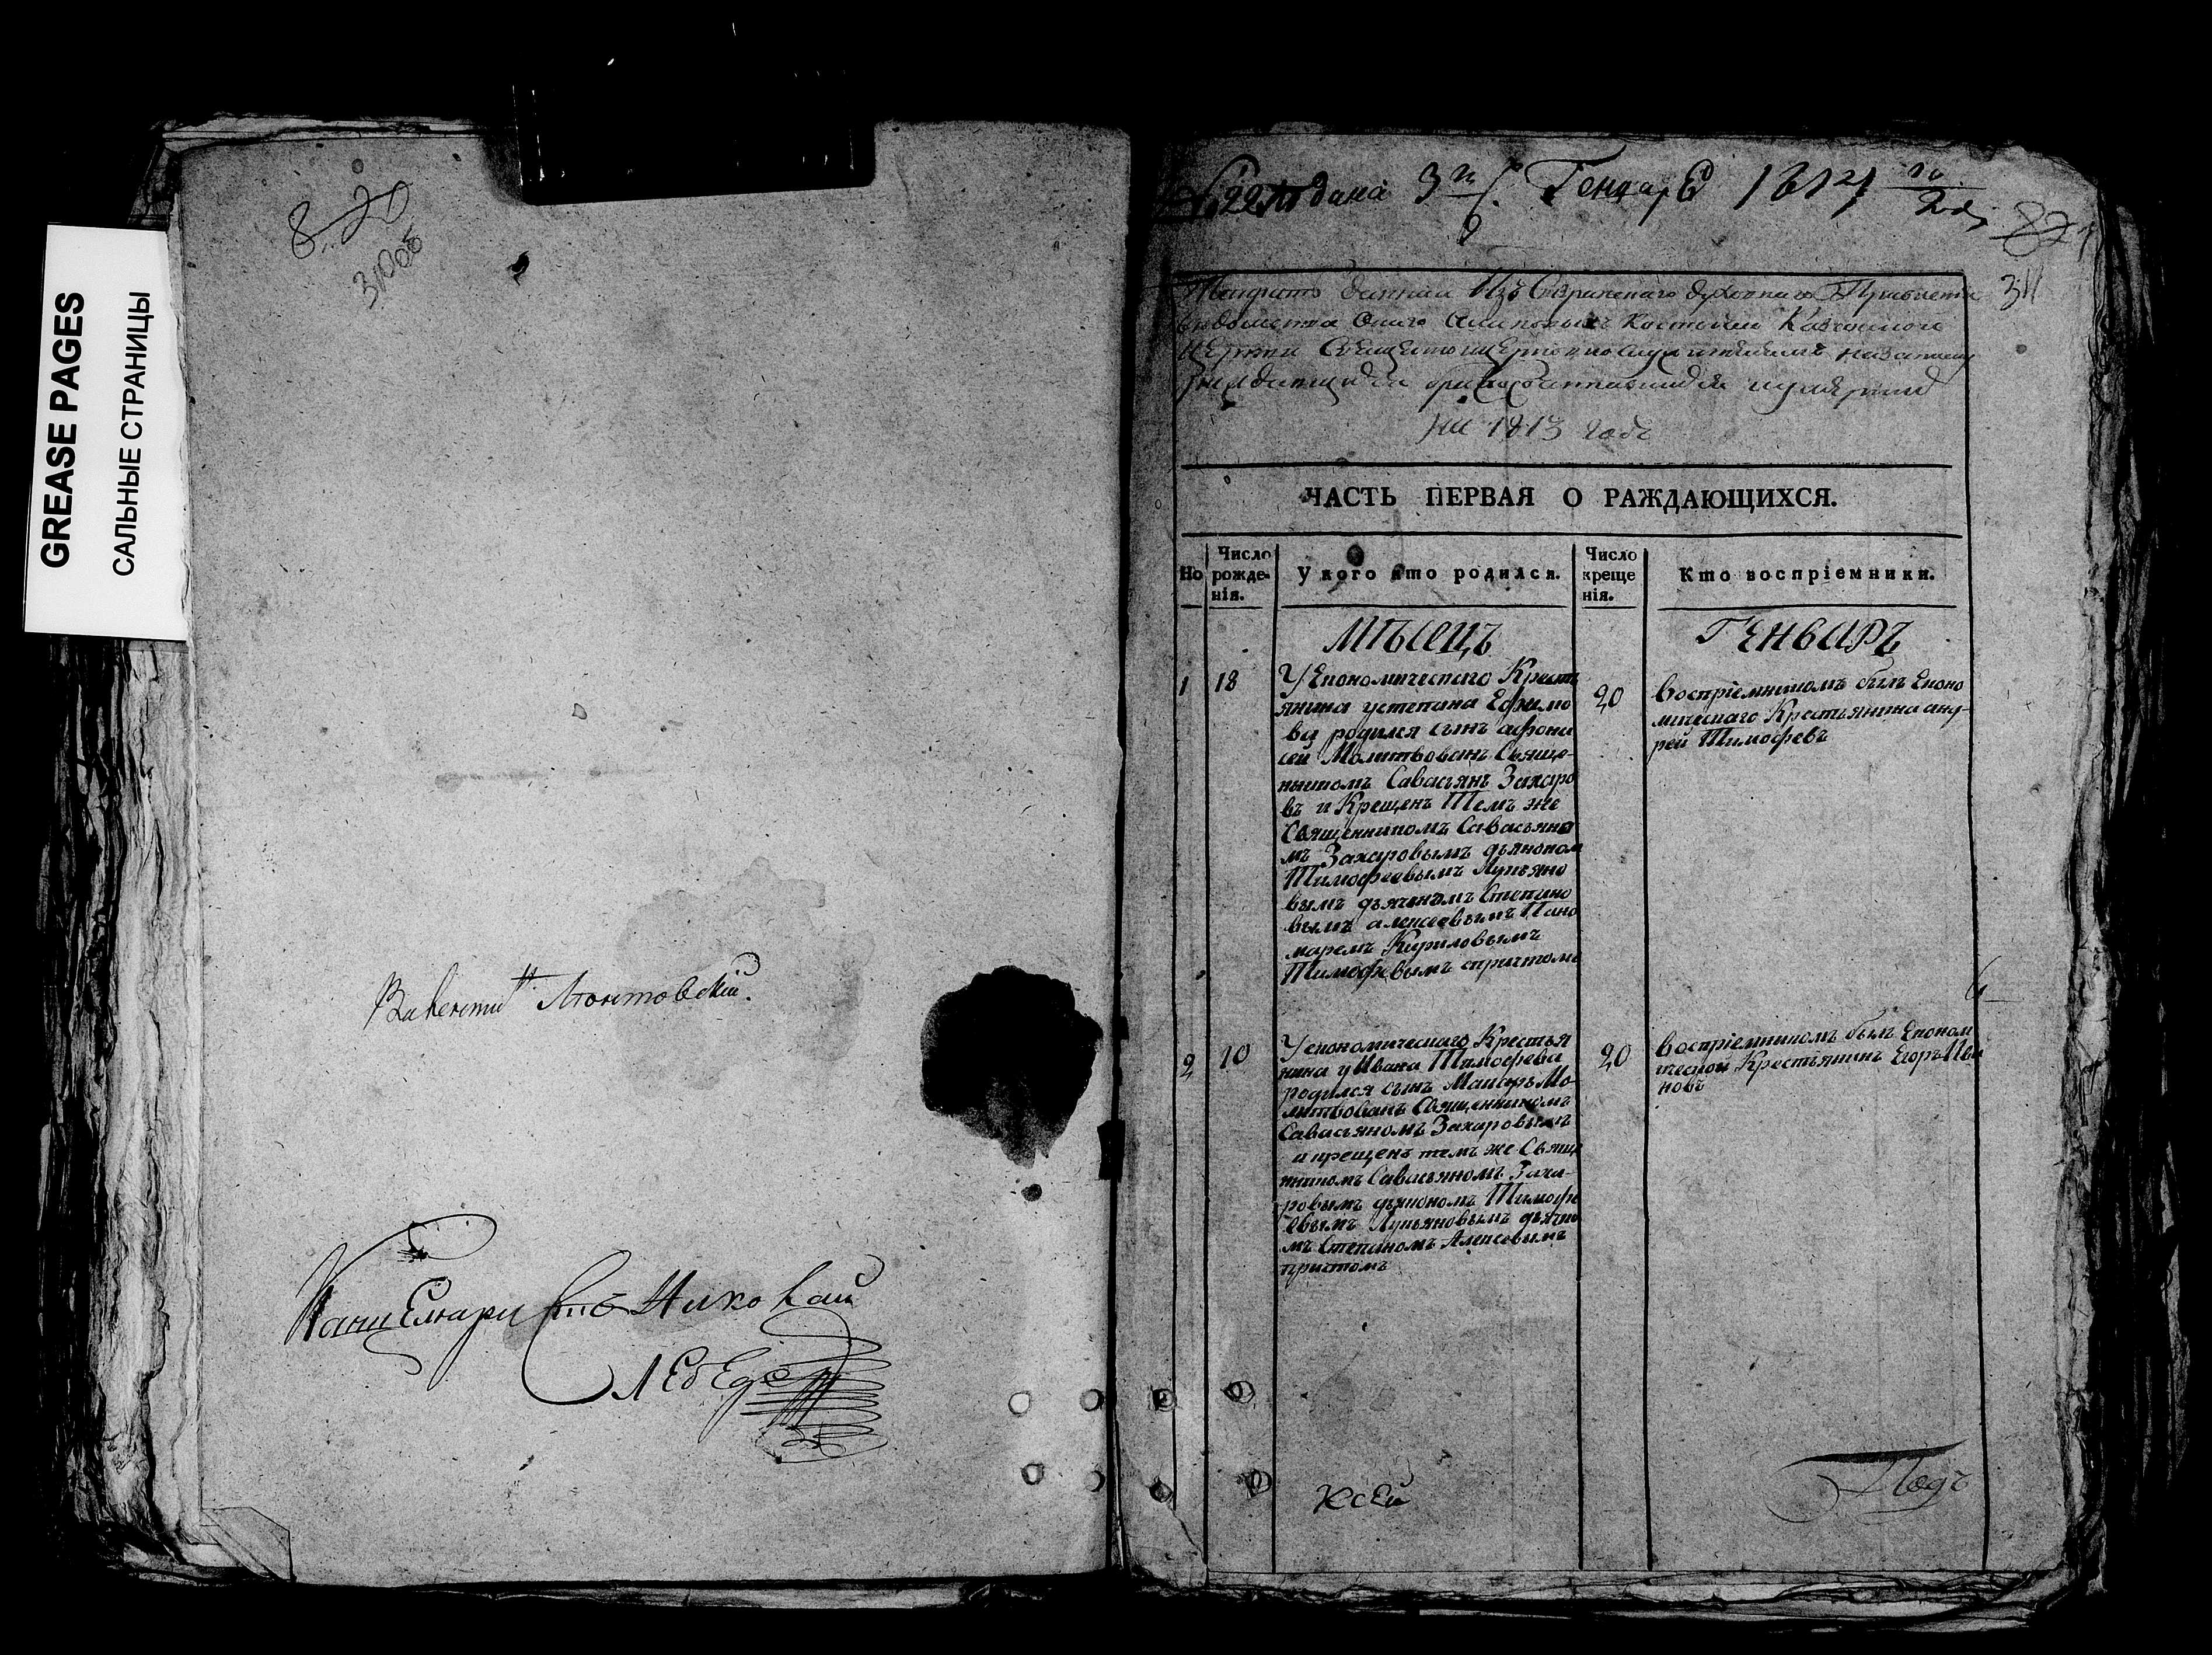 GREASE PAGES
САЛЬНЫЕ СТРАНИЦЫ
820
310об
Канцеляристъ Николай
Лебедевъ
подана Генваря 1814 го
821
311
данная Изъ духовнаго
Казанской
церкви
на 1813 годъ
ЧАСТЬ ПЕРВАЯ О РАЖДАЮЩИХСЯ.
Но
Число рожденія.
У кого кто родился.
Число крещенія.
Кто воспріемники.
МѢСЕЦЪ
ГЕНВАРЬ
1
18
У Економическаго Кресть
янина устепана Ефимо
ва родился сынъ афона
сей Молитвованъ Свяще-
нникомъ Савасьянъ Захаро
въ и Крещенъ Темъ же
Священникомъ Савасьяно
мъ Захаровымъ дьякономъ
Тимофеевымъ Лукьяно
вымъ дьячкомъ Степано
вымъ алексеевымъ Поно
маремъ Кириловымъ
Тимофевымъ спричтомъ
20
Воспріемникомъ былъ Еконо
мическаго Крестьянина анд-
рей Тимофевъ
2
10
У економическаго Крестья
нина у Ивана Тимофева
родился сынъ Макаръ Мо-
литвованъ Священникомъ
Савасьяномъ Захаровымъ
и крещенъ темъ же Свяще
нникомъ Савасьяномъ Заха-
ровымъ дьякономъ Тимофе
евымъ Лукьяновымъ дьячко
мъ Степаномъ Алексевымъ
причтомъ
20
Воспріемникомъ былъ Економ
ческой Крестіянинъ Егоръ Ива
новъ
Ксей
Подъ